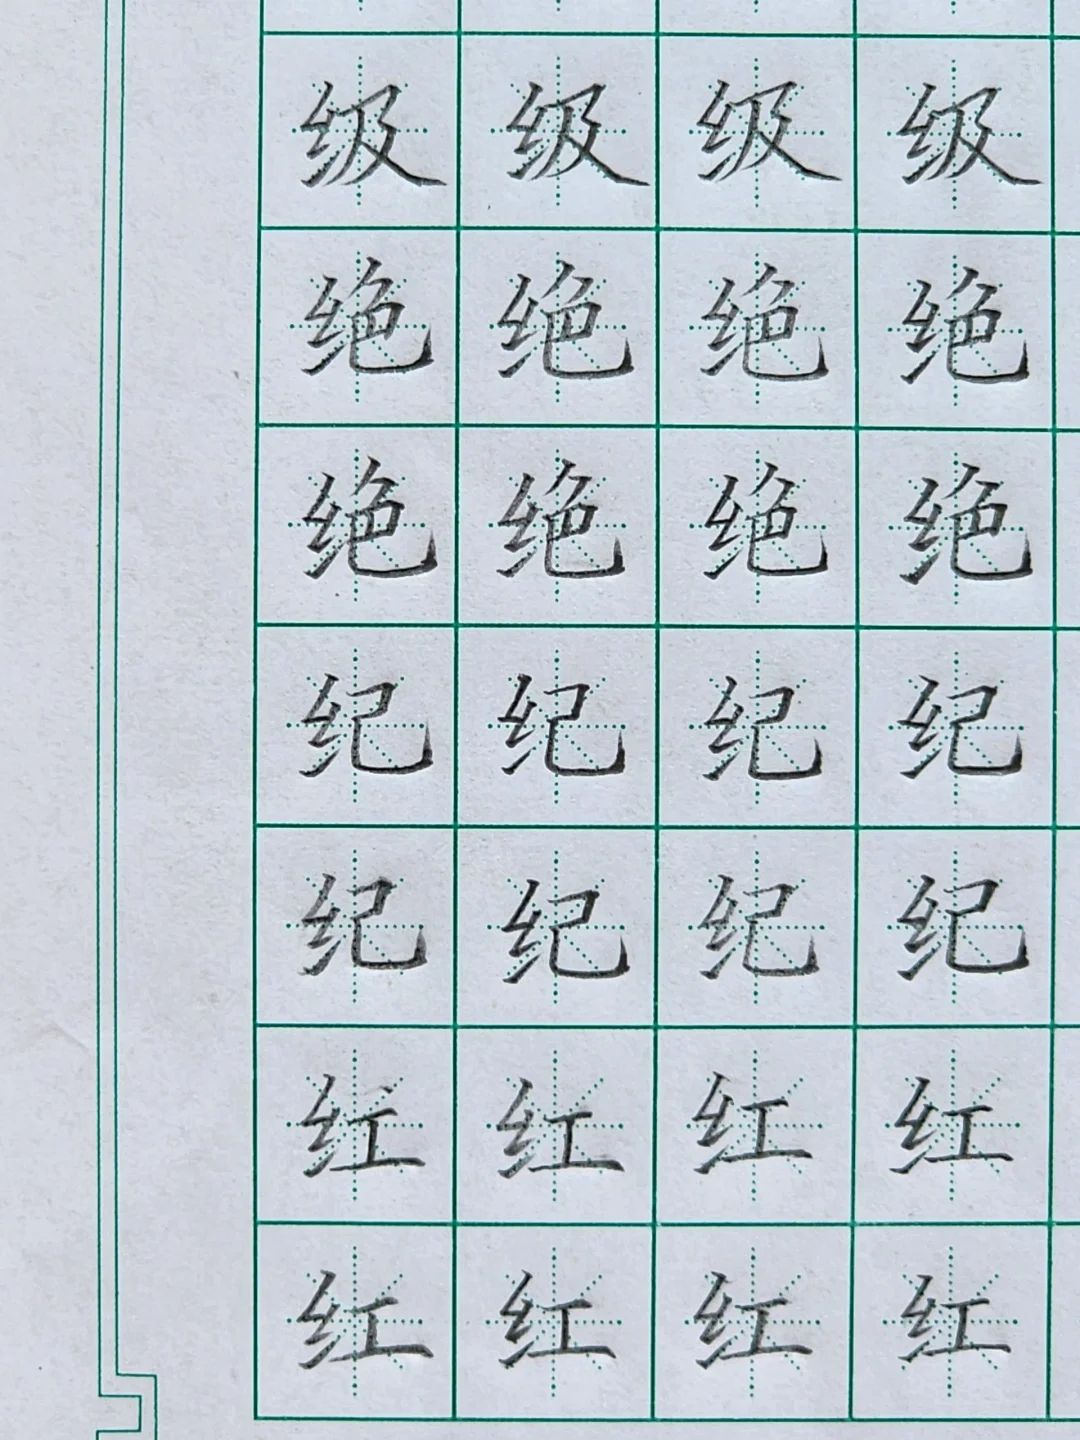 级级级级
绝绝绝绝
绝绝绝绝
纪纪纪纪
纪纪纪纪
红红红红
红红红红